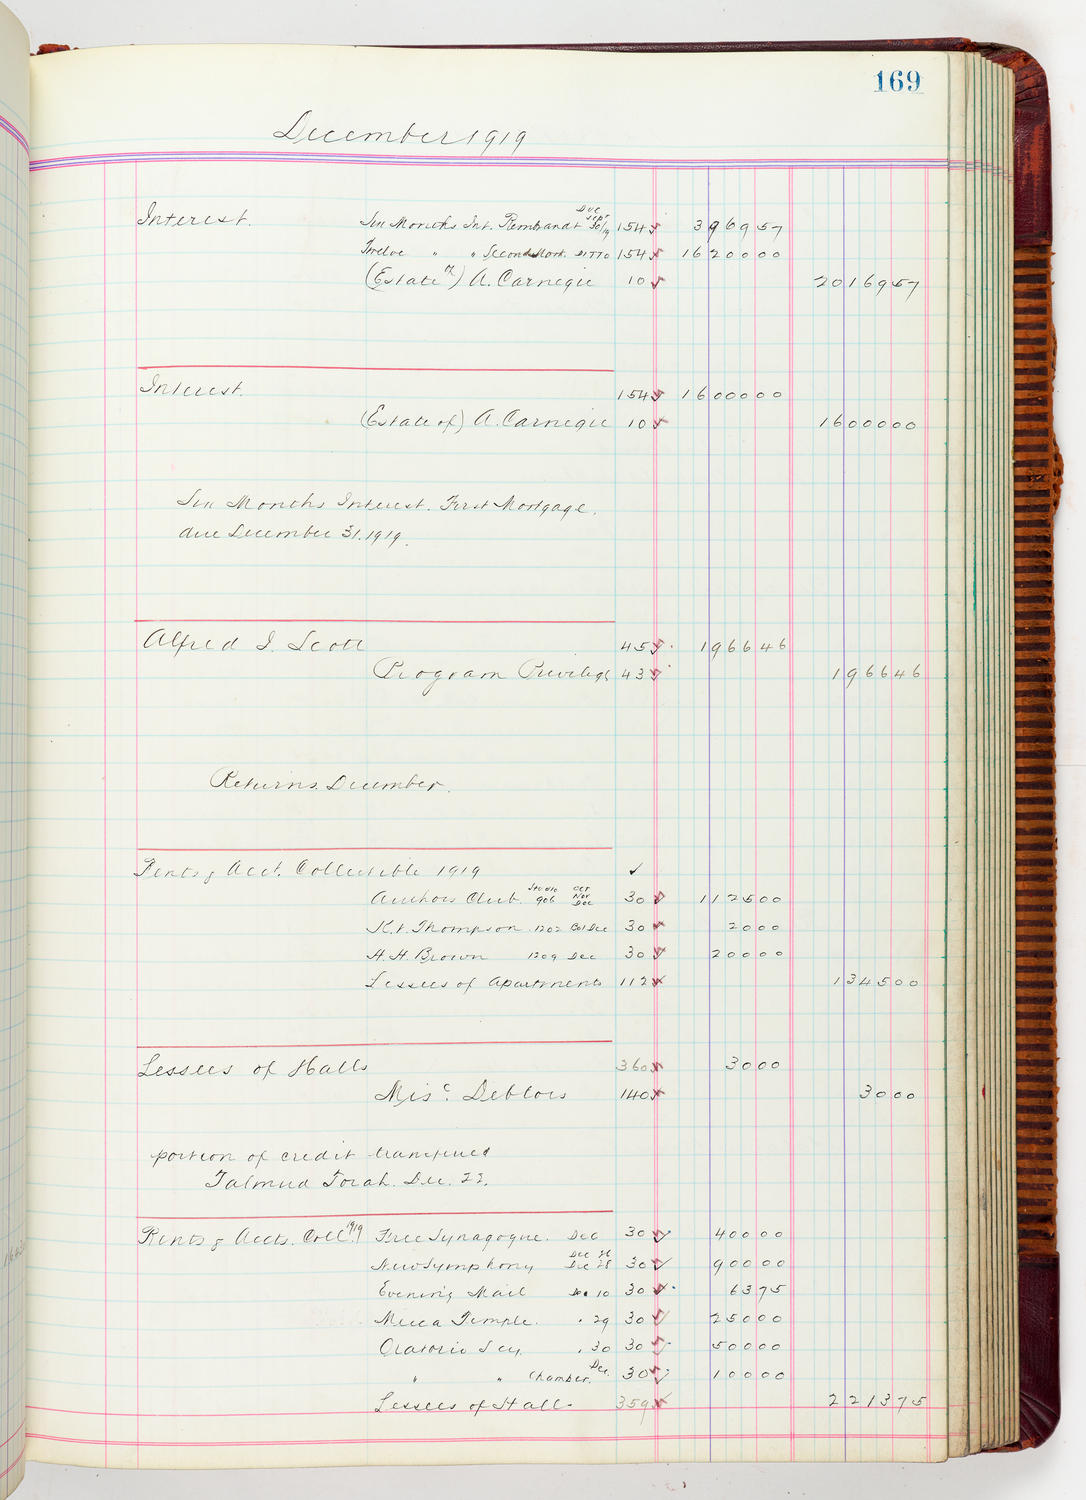 169
December 1919
Interest. Six Months Int. Rembrandt Due Sept 30/19 154 3969 57
Twelve " " Second Mort. DITTO 154 16200 00
(Estate of) A. Carnegie 10 20169 57
Interest. 154 16000 00
(Estate of) A. Carnegie 10 16000 00
Six Months Interest. First Mortgage.
due December 31. 1919.
Alfred I. Scott 45 1966 46
Program Privilege 43 1966 46
Returns. December.
Rents & Acct. Collectible 1919 ✓
Authors Club. Studio 906 Oct Nov Dec 30 1125 00
Thompson 1202 Dec 30 20 00
H. H. Brown 1209 Dec 30 200 00
Lessees of Apartments 112 1345 00
Lessees of Halls 360 30 00
Misc. Debtors 140 30 00
portion of credit transferred
Talmud Torah. Dec. 22.
Rents & Accts. Coll. 1919 Free Synagogue. Dec 30 400 00
New Symphony Dec 28 30 900 00
Evening Mail Dec 10 30 63 75
Mecca Temple. " 29 30 250 00
Oratorio Socy. " 30 30 500 00
" " Chamber. Dec. 30 100 00
Lessees of Hall. 359 2213 75